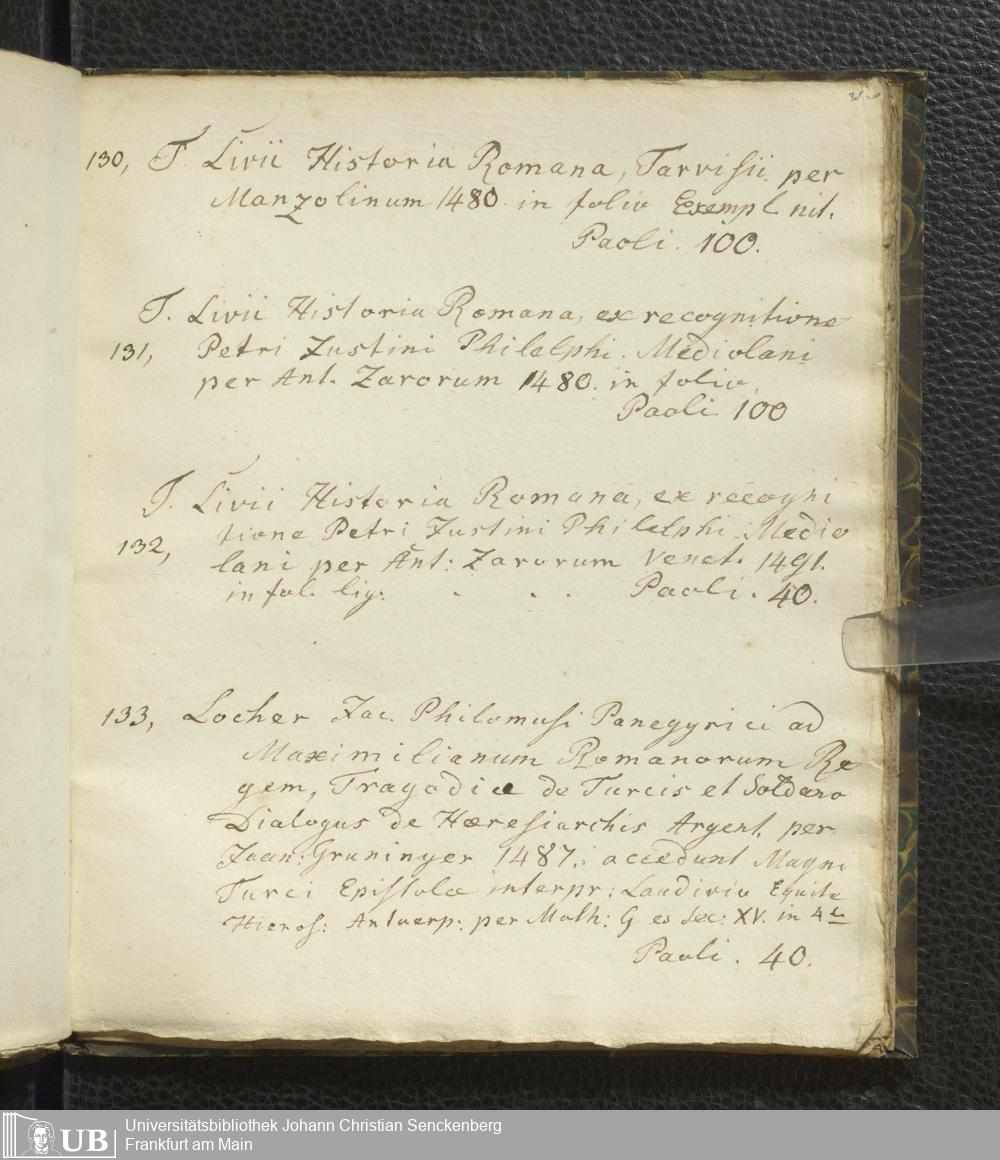 130, T. Livii Historia Romana, Tarvisii per
Manzolinum 1480. in folio Exempl nit.
Paoli. 100.
T. Livii Historia Romana, ex recognitione
131, Petri Justini Philelphi. Mediolani
per Ant. Zarorum 1480. in folio.
Paoli 100
T. Livii Historia Romana, ex recogni
132, tione Petri Justini Philelphi. Medio
lani per Ant: Zarorum Venet. 1491.
in fol. lig: . . . Paoli. 40.
133, Locher Jac. Philomusi Panegyrici ad
Maximilianum Romanorum Re
gem, Tragodiæ de Turcis et Soldano
Dialogus de Hæresiarchis Argent. per
Joan: Gruninger 1487. accedunt Magni
Turci Epistolæ interpr: Landivio Equite
Hieros: Antuerp: per Math: G es Sec: XV. in 4to
Paoli. 40.
UB
Universitätsbibliothek Johann Christian Senckenberg
Frankfurt am Main